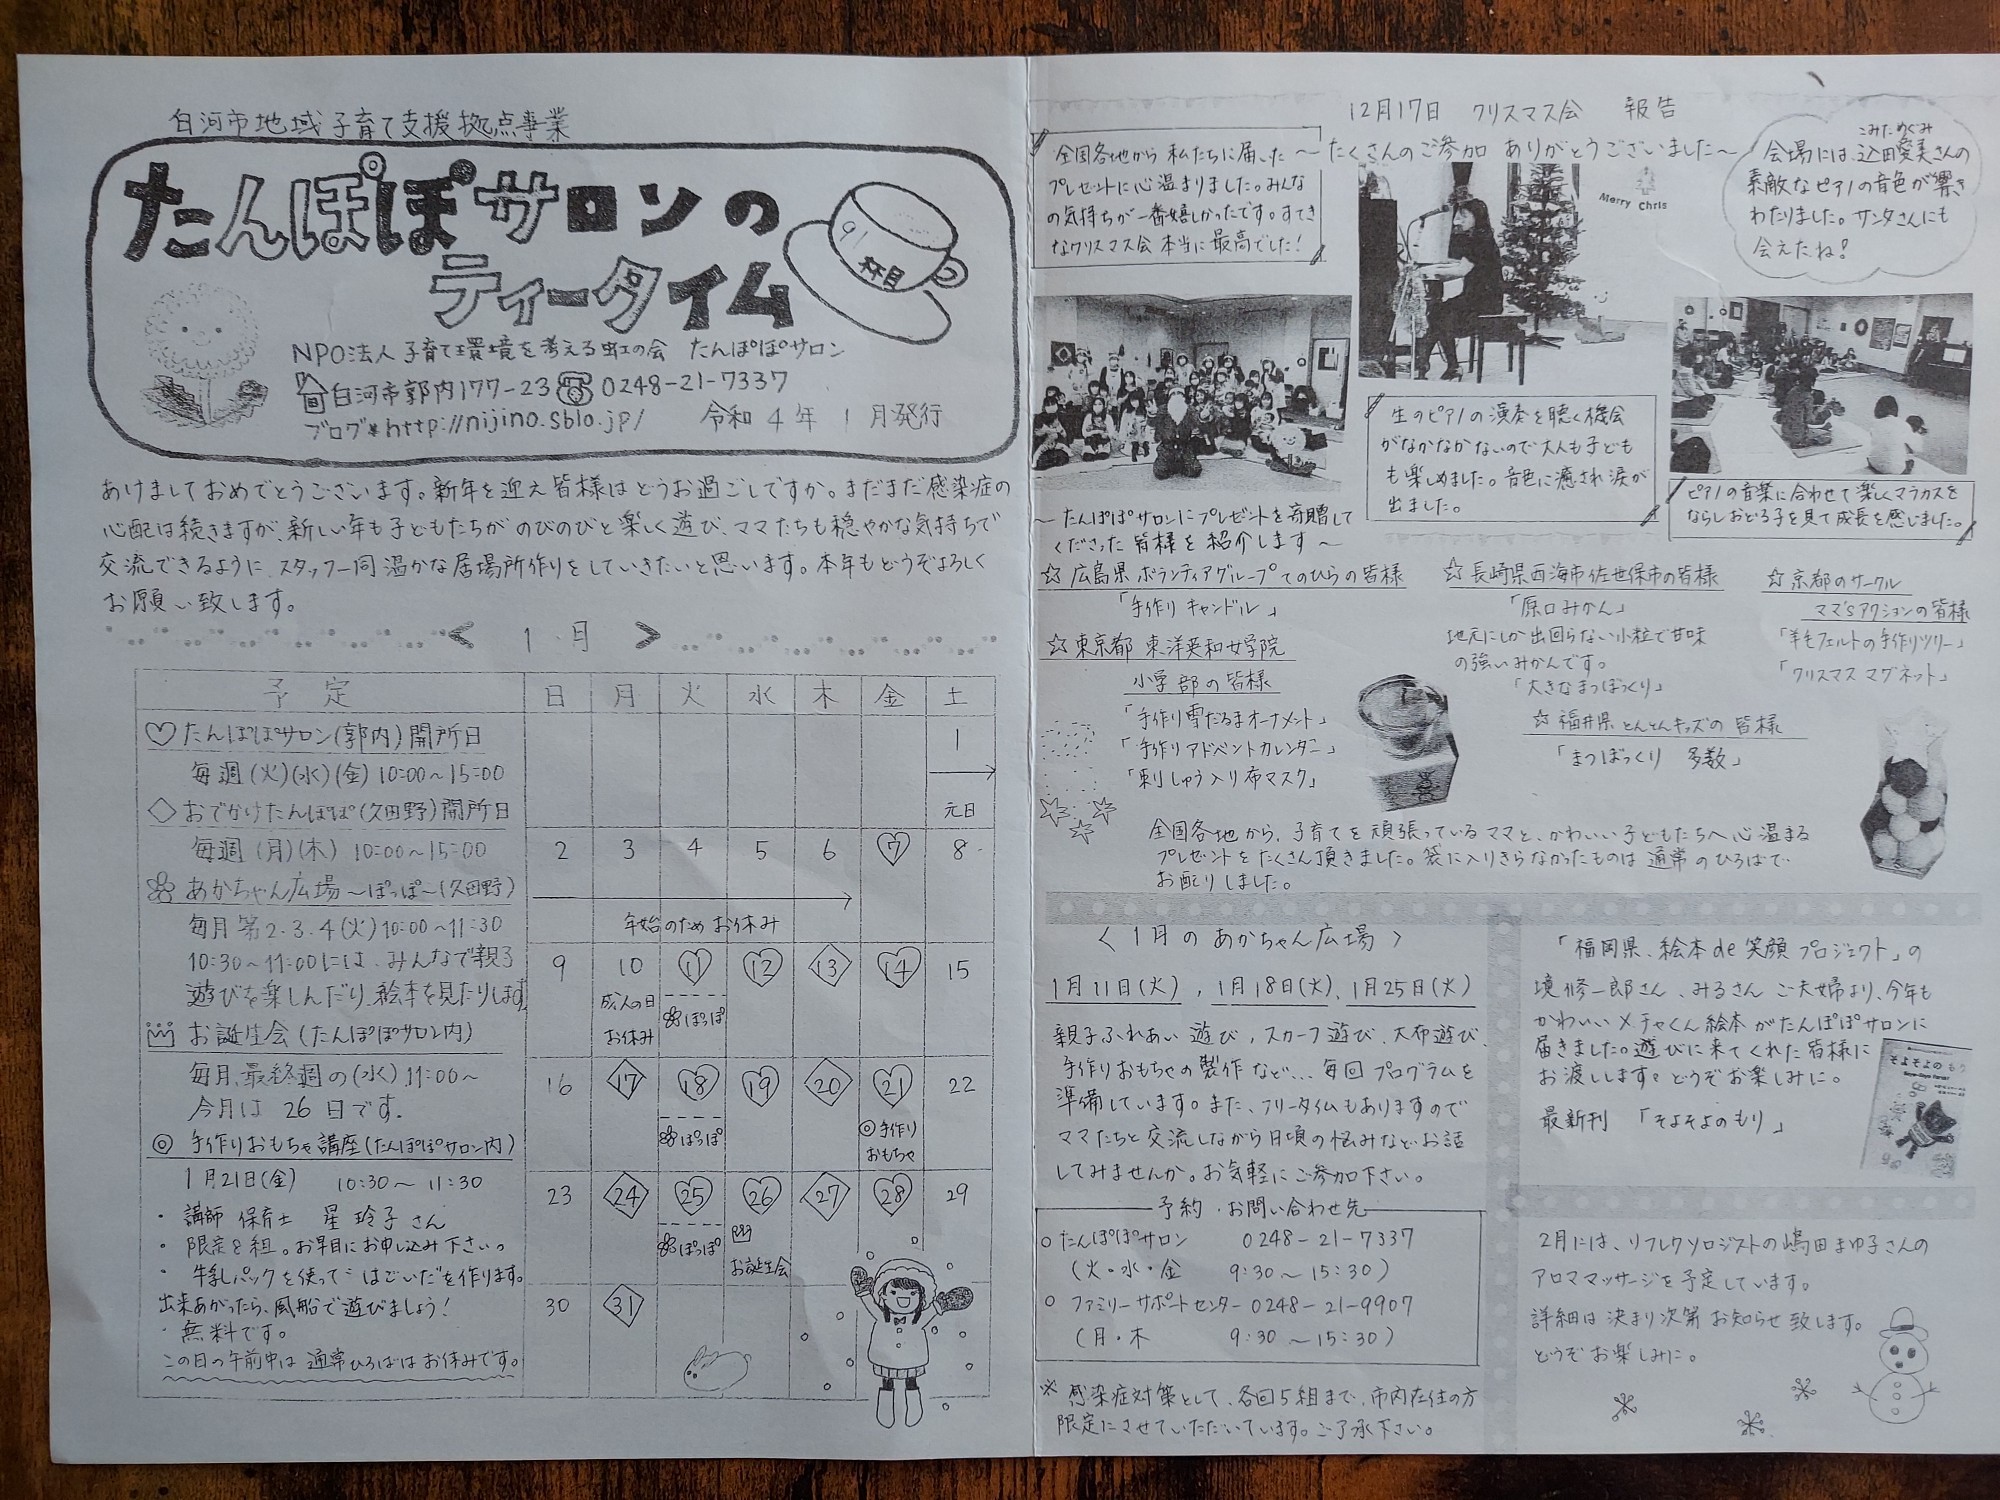 白河市地域子育て支援拠点事業
たんぽぽサロンの
ティータイム
91
杯目
NPO法人 子育て環境を考える虹の会 たんぽぽサロン
白河市郭内177-23 0248-21-7337
ブログ* http://nijino.sblo.jp/ 令和4年 1月発行
あけましておめでとうございます。新年を迎え皆様はどうお過ごしですか。まだまだ感染症の
心配は続きますが、新しい年も子どもたちがのびのびと楽しく遊び、ママたちも穏やかな気持ちで
交流できるように、スタッフ一同温かな居場所作りをしていきたいと思います。本年もどうぞよろしく
お願い致します。
< 1月 >
予定 日 月 火 水 木 金 土
♡たんぽぽサロン(郭内)開所日
毎週(火)(水)(金) 10:00～15:00
◇おでかけたんぽぽ(久田野)開所日
毎週(月)(木) 10:00～15:00
あかちゃん広場～ぽっぽ～(久田野)
毎月第2.3.4(火)10:00～11:30
10:30～11:00には、みんなで親子
遊びを楽しんだり、絵本を見たりします
お誕生会(たんぽぽサロン内)
毎月、最終週の(水)11:00～
今月は 26日です.
◎ 手作りおもちゃ講座(たんぽぽサロン内)
1月21日(金) 10:30～11:30
・講師 保育士 星 玲子さん
・限定8組。お早目にお申し込み下さい。
・牛乳パックを使って はごいたを作ります。
出来あがったら、風船で遊びましょう!
・無料です。
この日の午前中は 通常ひろばは お休みです。
1
元日
2 3 4 5 6 7 8
年始のため お休み
9 10 11 12 13 14 15
成人の日
お休み
ぽっぽ
16 17 18 19 20 21 22
ぽっぽ
◎手作り
おもちゃ
23 24 25 26 27 28 29
ぽっぽ
お誕生会
30 31
12月17日 クリスマス会 報告
～たくさんのご参加 ありがとうございました～
全国各地から 私たちに届いた
プレゼントに心温まりました。みんな
の気持ちが一番嬉しかったです。すてき
なクリスマス会 本当に最高でした!
Merry Chris
こみためぐみ
会場には、込田愛美さんの
素敵なピアノの音色が響き
わたりました。サンタさんにも
会えたね!
生のピアノの演奏を聴く機会
がなかなかないので大人も子ども
も楽しめました。音色に癒され涙が
出ました。
ピアノの音楽に合わせて楽しくマラカスを
ならしおどる子を見て成長を感じました。
～たんぽぽサロンにプレゼントを寄贈して
くださった 皆様を紹介します～
☆広島県 ボランティアグループてのひらの皆様
「手作りキャンドル」
☆東京都 東洋英和女学院
小学部の皆様
「手作り雪だるまオーナメント」
「手作りアドベントカレンダー」
「刺しゅう入り布マスク」
☆長崎県西海市佐世保市の皆様
「原口みかん」
地元にしか出回らない小粒で甘味
の強いみかんです。
「大きなまつぼっくり」
☆福井県とんとんキッズの皆様
「まつぼっくり 多数」
☆京都のサークル
ママ'sアクションの皆様
「羊毛フェルトの手作りツリー」
「クリスマスマグネット」
全国各地から、子育てを頑張っているママと、かわいい子どもたちへ心温まる
プレゼントをたくさん頂きました。袋に入りきらなかったものは通常のひろばで
お配りしました。
〈1月のあかちゃん広場〉
1月11日(火)、1月18日(火)、1月25日(火)
親子ふれあい遊び、スカーフ遊び、大布遊び、
手作りおもちゃの製作など...毎回プログラムを
準備しています。また、フリータイムもありますので
ママたちと交流しながら日頃の悩みなどお話
してみませんか。お気軽にご参加下さい。
予約・お問い合わせ先
○たんぽぽサロン 0248-21-7337
(火・水・金 9:30～15:30)
○ファミリーサポートセンター 0248-21-9907
(月・木 9:30～15:30)
※感染症対策として、各回5組まで、市内在住の方
限定にさせていただいています。ご了承下さい。
「福岡県、絵本de笑顔プロジェクト」の
境修一郎さん、みるさんご夫婦より、今年も
かわいいメチャくん絵本がたんぽぽサロンに
届きました。遊びに来てくれた皆様に
お渡しします。どうぞお楽しみに。
最新刊 「そよそよのもり」
そよそよのもり
2月には、リフレクソロジストの嶋田まゆ子さんの
アロママッサージを予定しています。
詳細は決まり次第お知らせ致します。
どうぞお楽しみに。